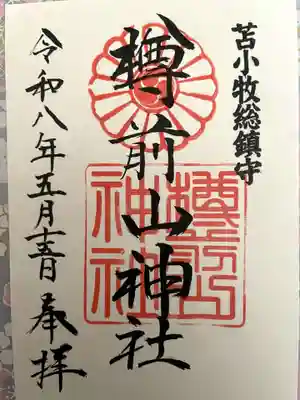 苫小牧総鎮守
樽前山神社
樽前山神社
令和八年五月十三日 奉拝